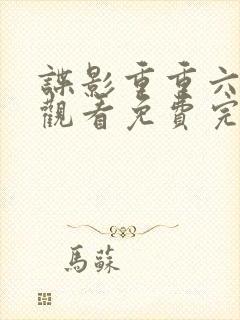 諜影重重六
觀看免費完
馬蘇